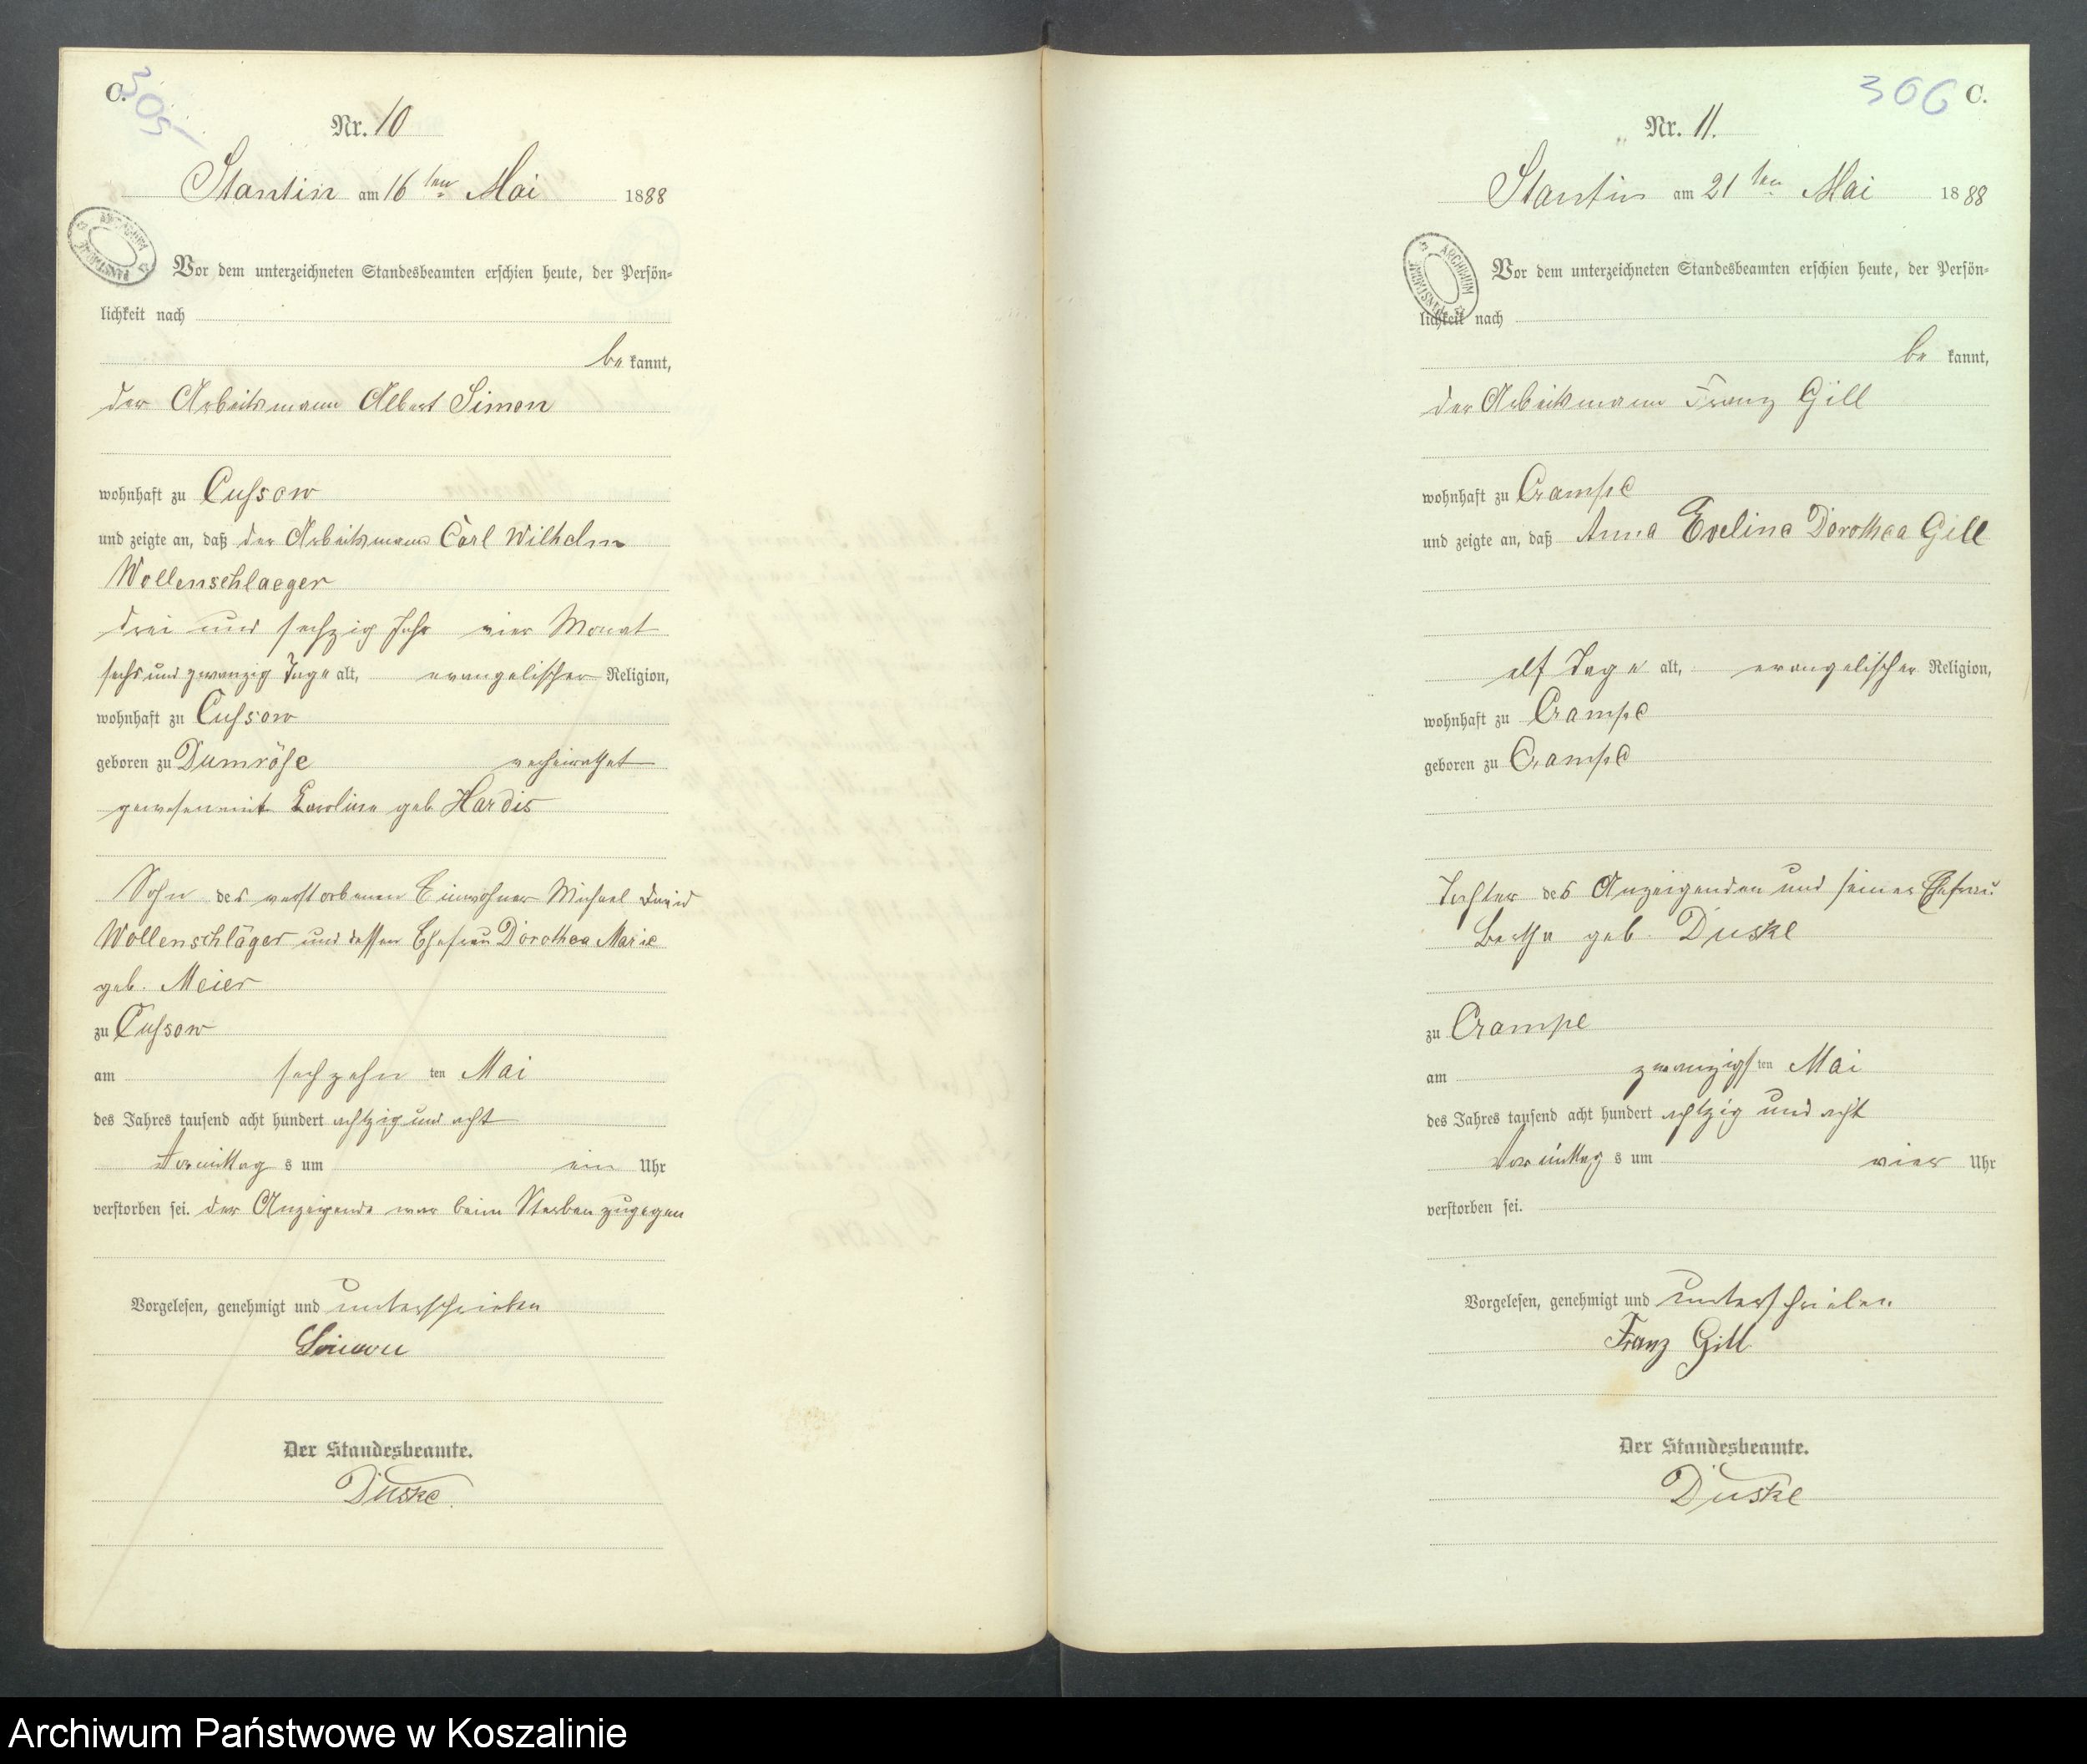 C.
305
Nr. 10
Stantin am 16ten Mai 1888
ARCHIWUM PAŃSTWOWE
Vor dem unterzeichneten Standesbeamten erschien heute, der Persön-
lichkeit nach
be kannt,
der Arbeitsmann Albert Simon
wohnhaft zu Cussow
und zeigte an, daß der Arbeitsmann Carl Wilhelm
Wollenschlaeger
drei und sechzig Jahr vier Monat
sechs und zwanzig Tage alt, evangelischer Religion,
wohnhaft zu Cussow
geboren zu Dumröse verheirathet
gewesen mit Karoline geb Hardis
Sohn des verstorbenen Einwohner Michael David
Wollenschläger und dessen Ehefrau Dorothea Marie
geb. Meier
zu Cussow
am sechzehn ten Mai
des Jahres tausend acht hundert achtzig und acht
Vormittag s um ein Uhr
verstorben sei. der Anzeigende war beim Sterben zugegen
Vorgelesen, genehmigt und unterschrieben
Simon
Der Standesbeamte.
Duske
306 C.
Nr. 11.
Stantin am 21ten Mai 1888
ARCHIWUM PAŃSTWOWE
Vor dem unterzeichneten Standesbeamten erschien heute, der Persön-
lichkeit nach
be kannt,
der Arbeitsmann Franz Gill
wohnhaft zu Crampe
und zeigte an, daß Anna Eveline Dorothea Gill
elf Tage alt, evangelischer Religion,
wohnhaft zu Crampe
geboren zu Crampe
Tochter des Anzeigenden und seiner Ehefrau
Bertha geb. Duske
zu Crampe
am zwanzigs ten Mai
des Jahres tausend acht hundert achtzig und acht
Vormittag s um vier Uhr
verstorben sei.
Vorgelesen, genehmigt und unterschrieben
Franz Gill
Der Standesbeamte.
Duske
Archiwum Państwowe w Koszalinie